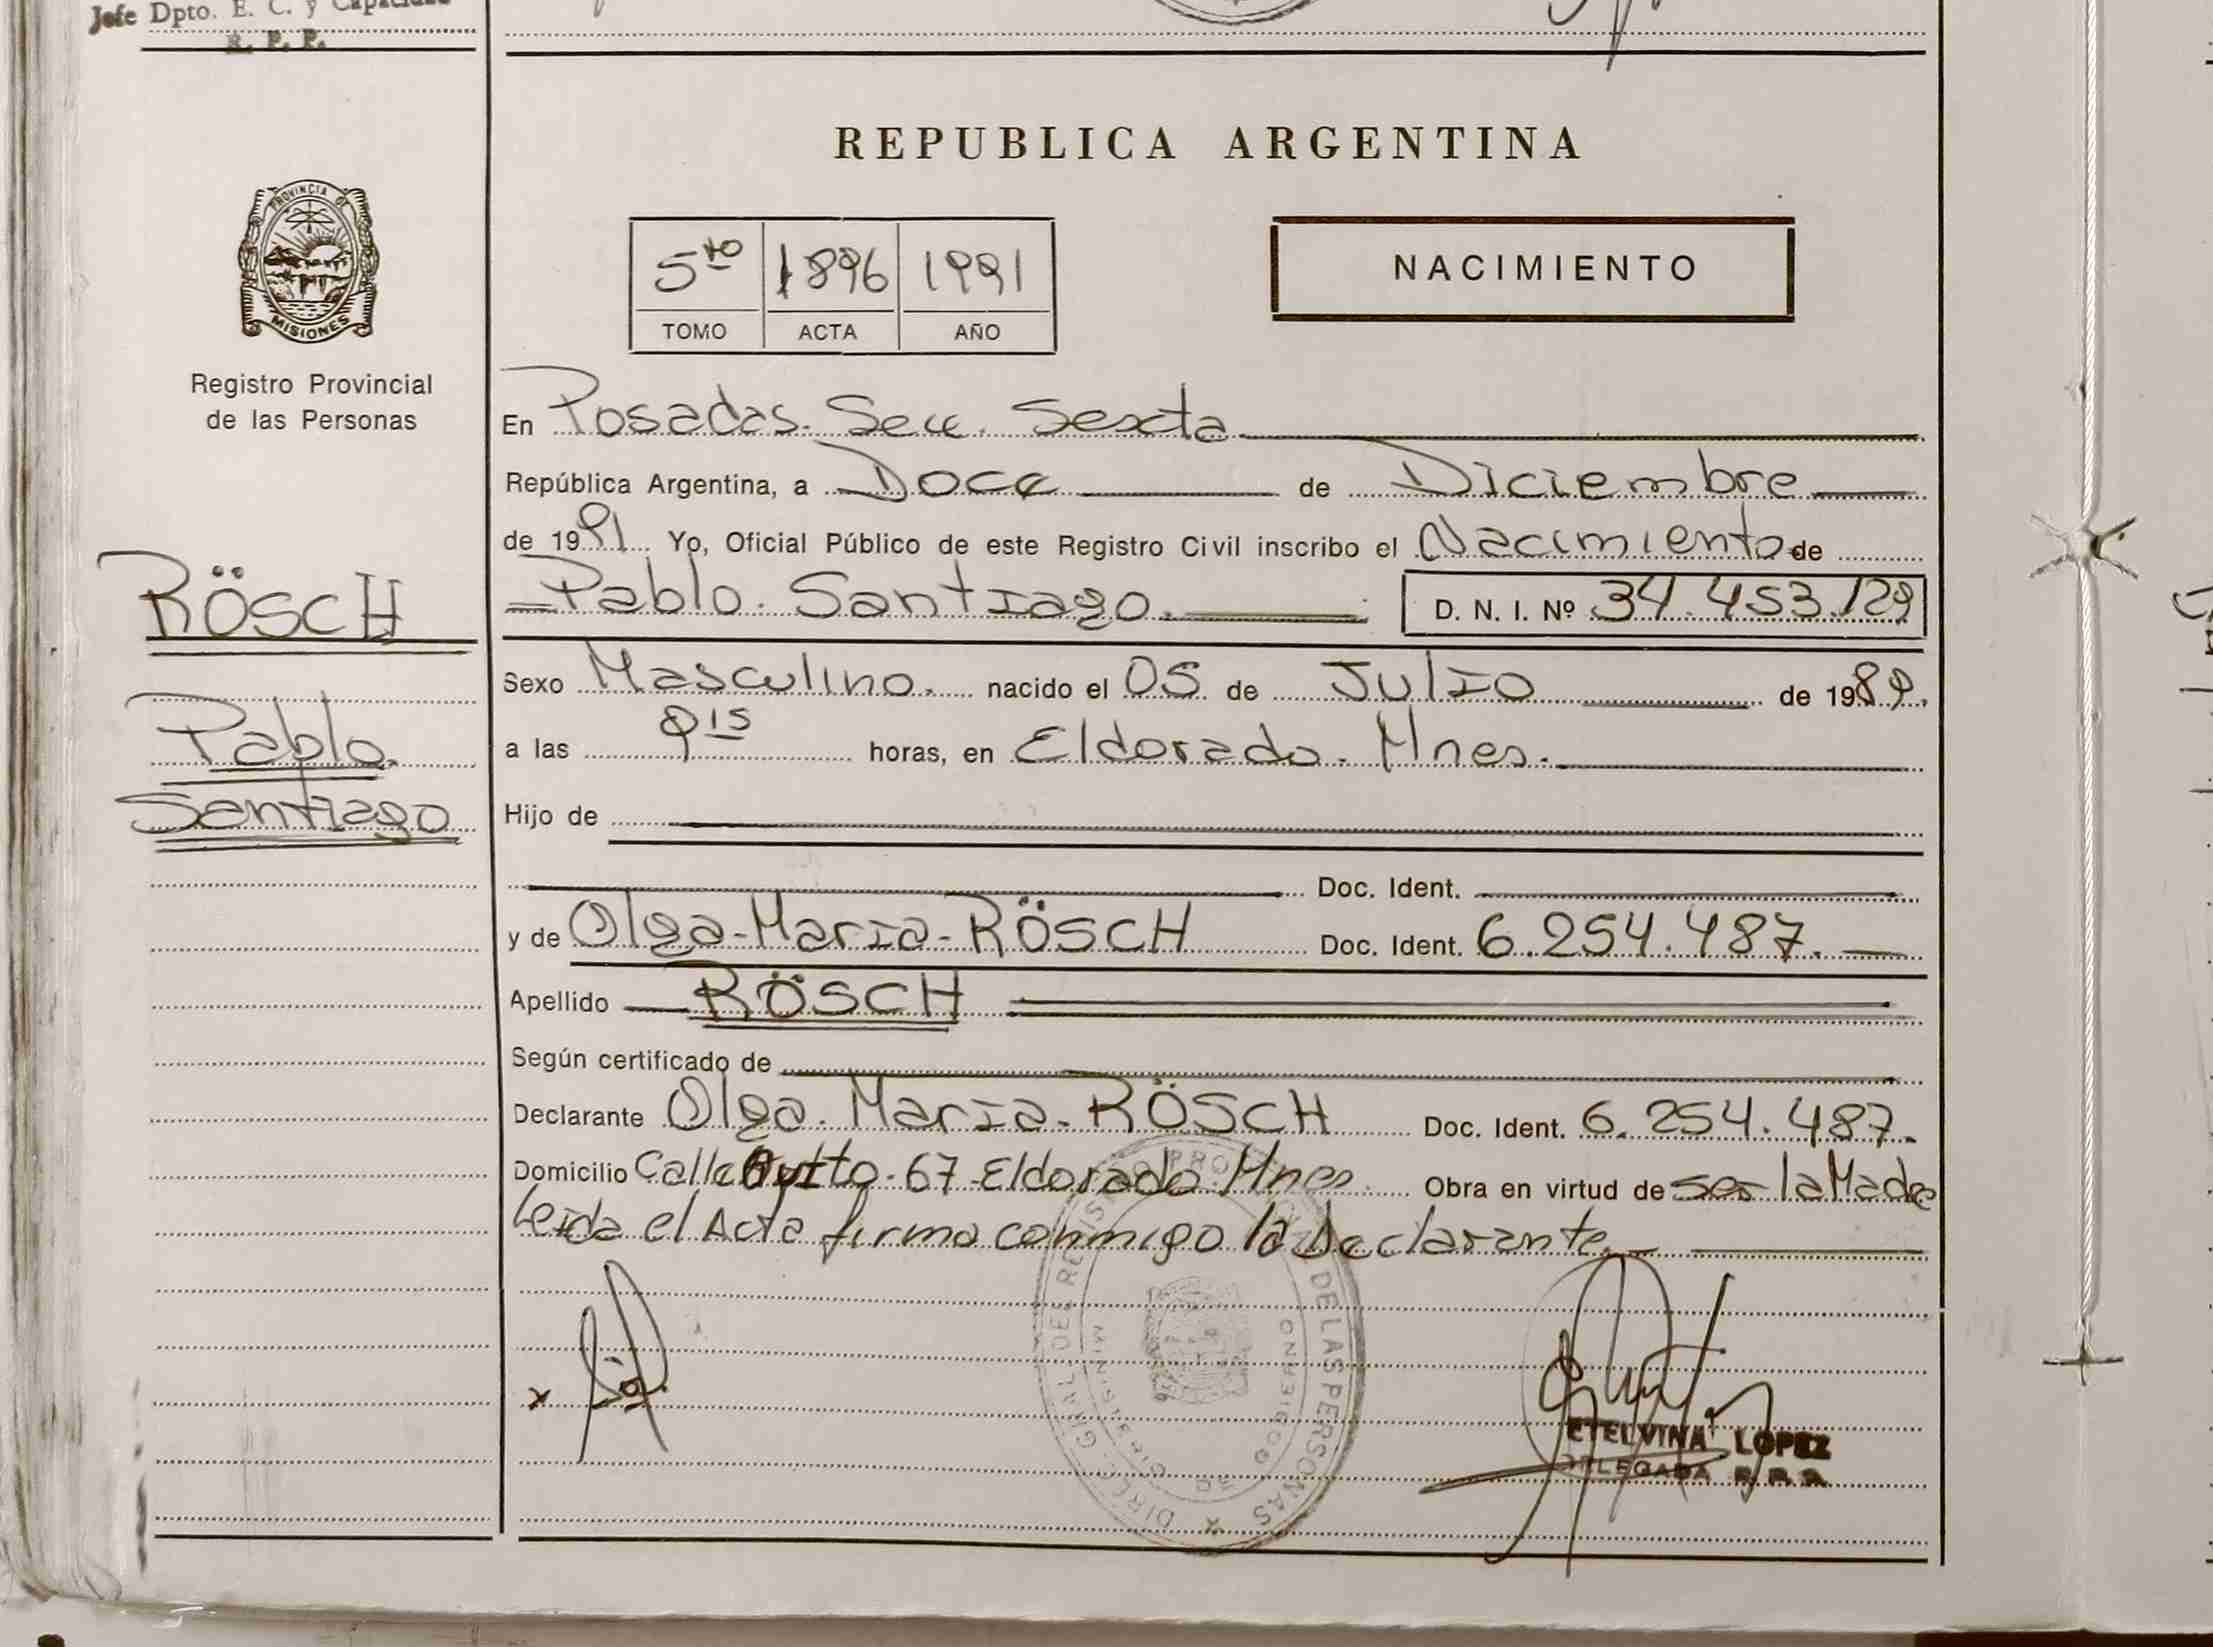 Jefe Dpto. E. C. y Capacidad
R. P. P.
PROVINCIA DE
MISIONES
Registro Provincial
de las Personas
RÖSCH
Pablo.
Santiago
REPUBLICA ARGENTINA
5to 1896 1991
TOMO ACTA AÑO
NACIMIENTO
En Posadas. Secc. Sexta
República Argentina, a Doce de Diciembre
de 1991. Yo, Oficial Público de este Registro Civil inscribo el Nacimiento de
Pablo. Santiago. D. N. I. Nº 34.453.129
Sexo Masculino. nacido el 05 de Julio de 1989.
a las 9 15 horas, en Eldorado. Mnes.
Hijo de
Doc. Ident.
y de Olga-María-RÖSCH Doc. Ident. 6.254.487.
Apellido RÖSCH
Según certificado de
Declarante Olga.María-RÖSCH Doc. Ident. 6.254.487.
Domicilio Calle 67-Eldorado.Mnes. Obra en virtud de ser la Madre
Leída el Acta firma conmigo la Declarante.
DIREC. GRAL. DEL REGISTRO PROV. DE LAS PERSONAS
GOBIERNO
ETELVINA LOPEZ
DELEGADA R. P. P.